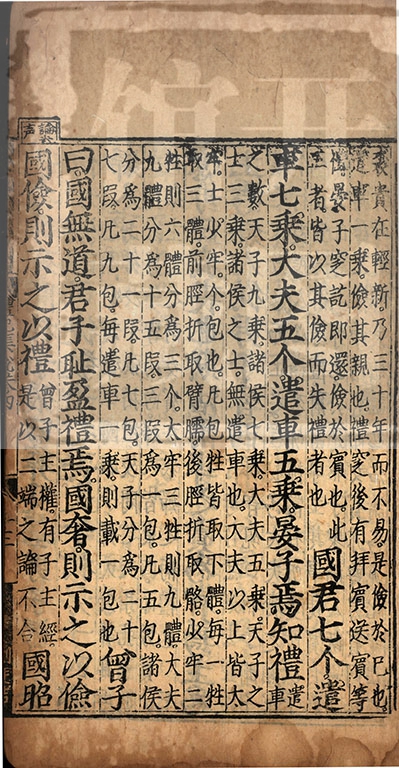 裘貴在輕新乃三十年而不易是儉於已也
遣車一乘儉其親也禮窆後有拜賓送賓等
禮晏子窆訖即還儉於賓也此
三者皆以其儉而失禮者也
國君七个遣
車七乘大夫五个遣車五乘晏子焉知禮遣車
之數天子九乘諸侯七乘大夫五乘天子之
士三乘諸侯之士無遣車也大夫以上皆太
牢士少牢个包也凡包牲皆取下體每一牲
取三體前脛折取臂臑後脛折取骼少牢二
牲則六體分為三个大牢三牲則九體大夫
九體分為十五段三段為一包凡五包諸侯
分為二十一段凡七包天子分為二十
七段凡九包每遣車一乘則載一包也
曾子
曰國無道君子恥盈禮焉國奢則示之以儉
國儉則示之以禮
曾子主權有子主經
是以二端之論不合
國昭